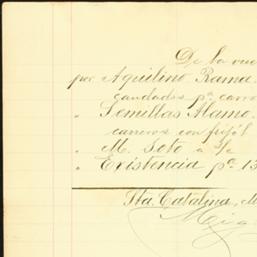 De la vue
por Aquilino Rama
candados pª carro
" Semillas Alamo
carreros con frijól
" M. Soto a S/c
" Existencia pª 13
Sta Catalina, M
Mig